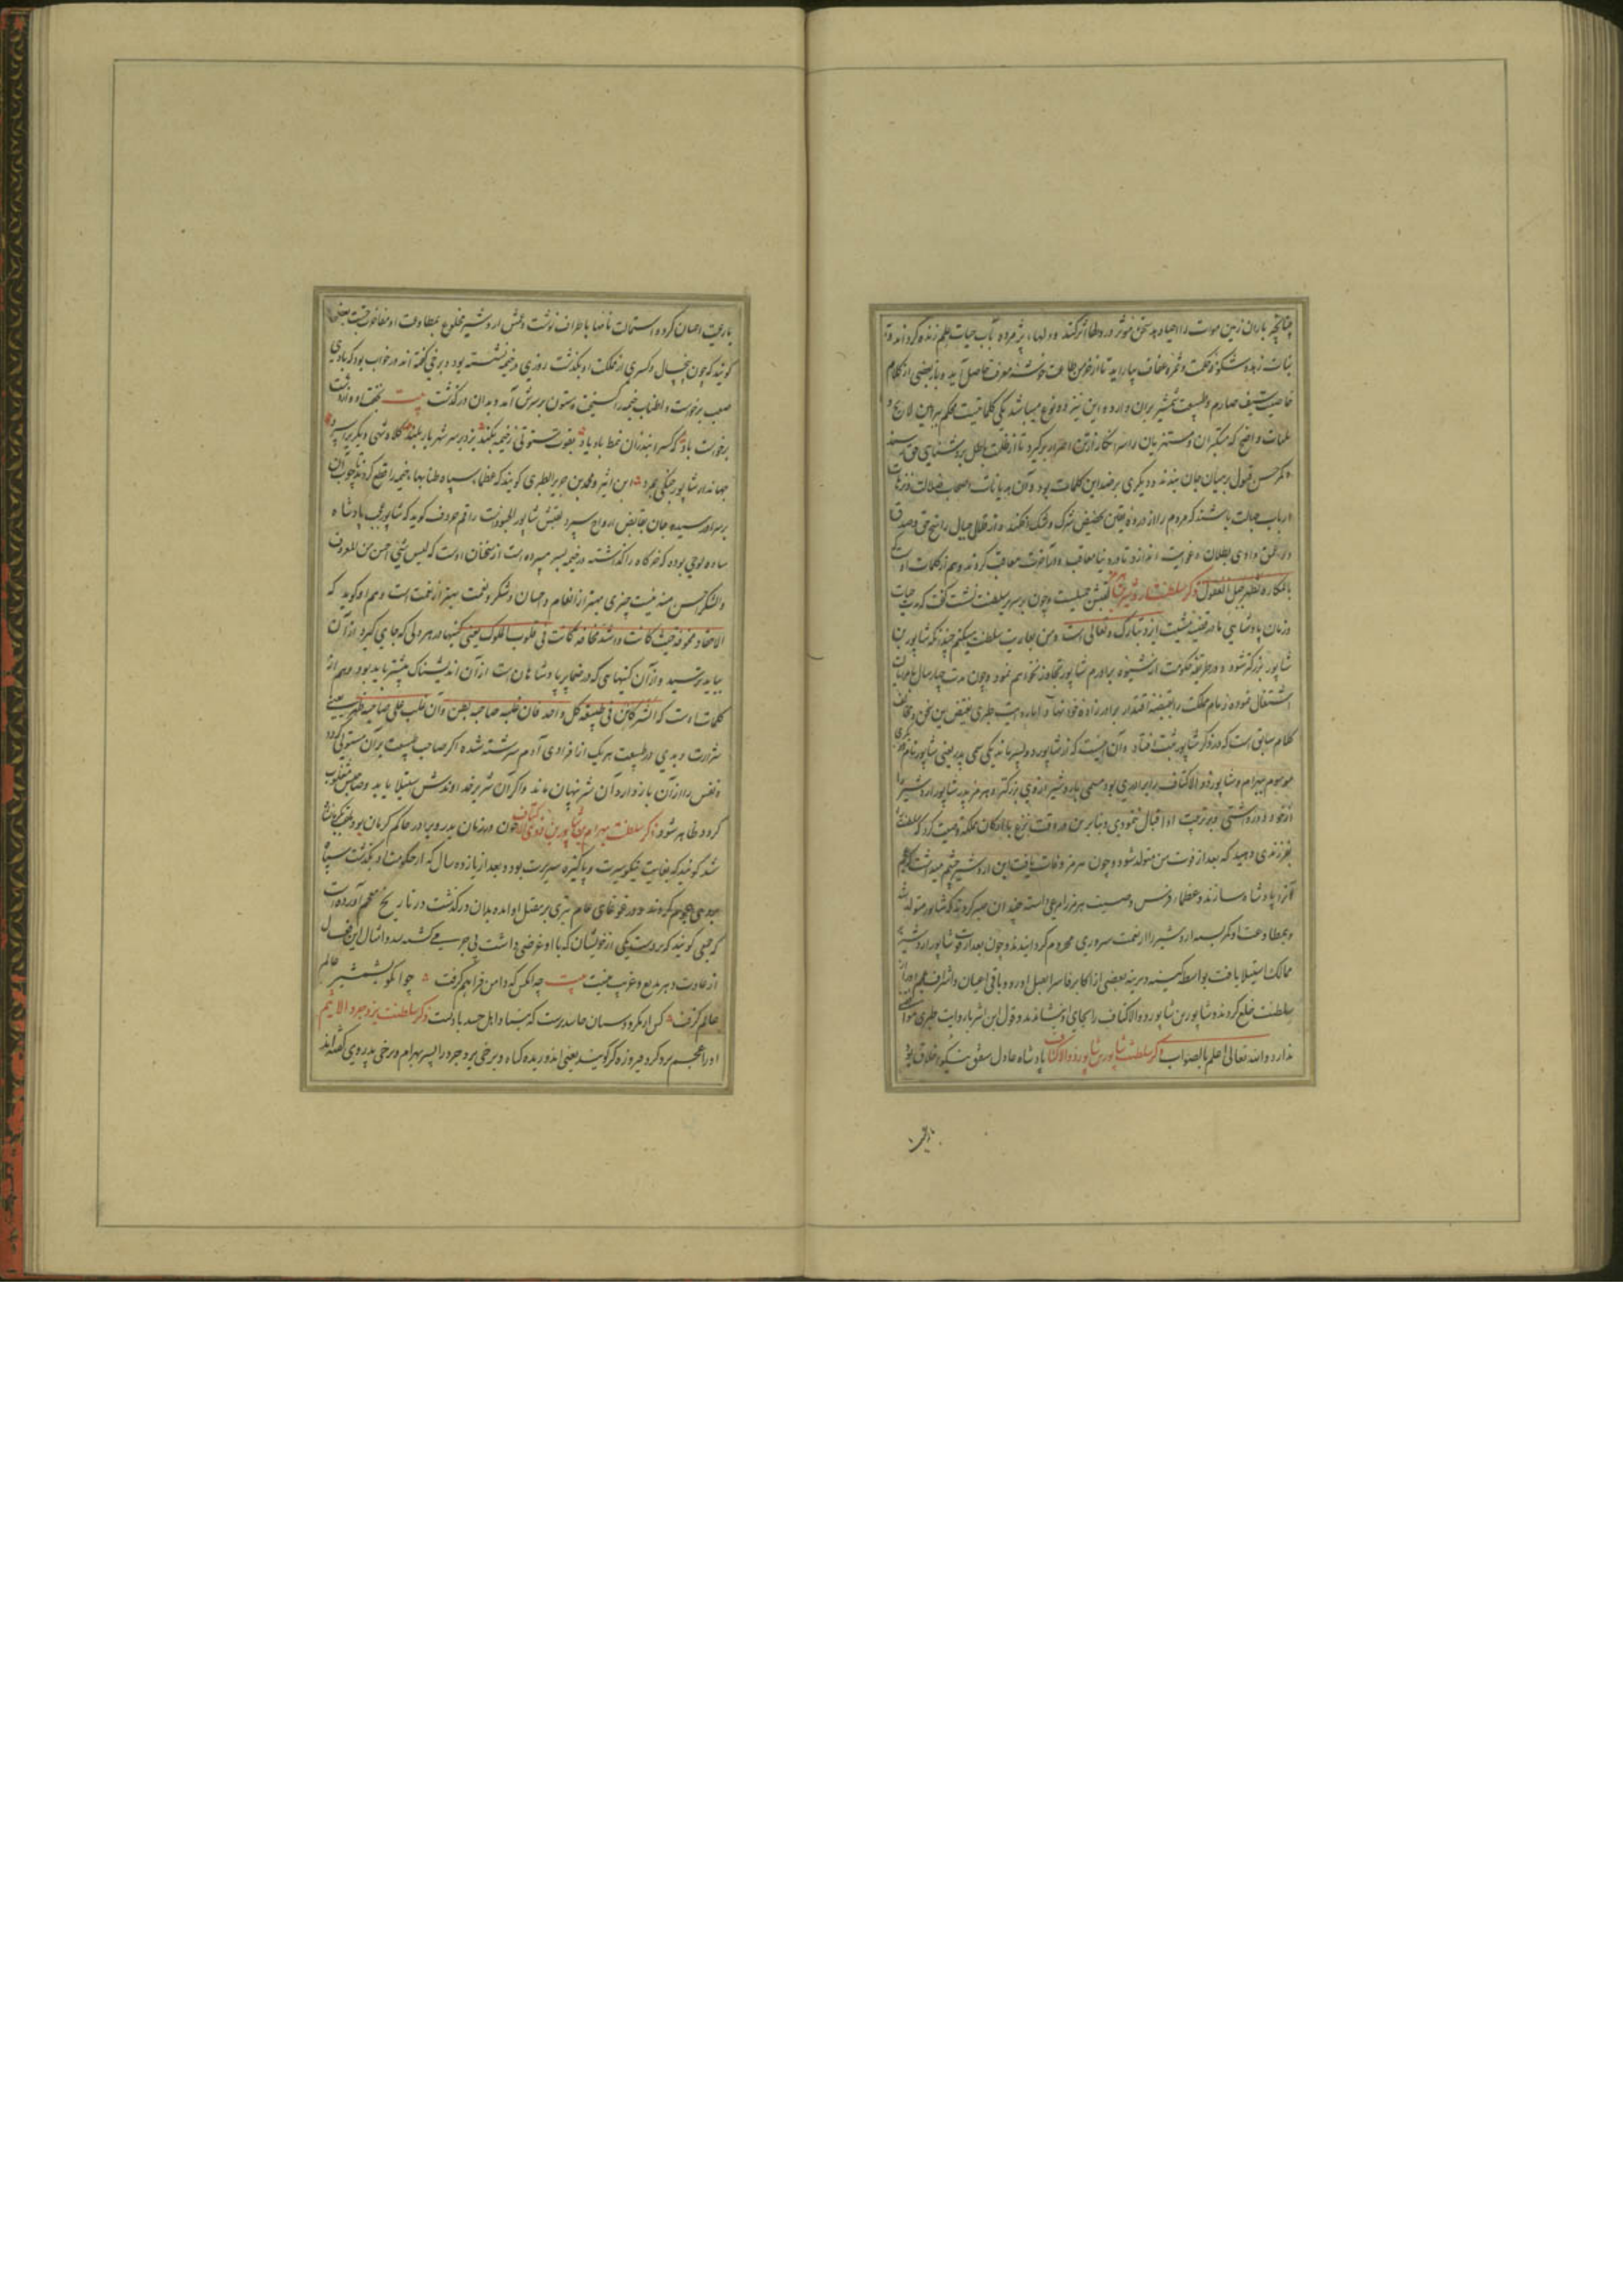 چنانچه باران زمین موات را احیا دهد سخن مؤثر در دلها اثر کند و دلهاء پژمرده بآب حیات علم زنده گرداند و
نبات زهد شکوفه حکمت و ثمره عفاف بیاراید تا از خرمن طاعت خوشه معرفت حاصل آید و باز بعضی از کلام
خاصیت سیف صارم و طبیعت شمشیر بران دارد و این نیز دو نوع میباشد یکی کلماتیست محکم ببراهین لایح و
بینات واضح که متکبران و مستهزیان را سر انکار از تن اصرار برگیرد تا از ظلمت باطل بروشنایی حق رسند
و کمر حسن قبول بر میان جان بندند و دیگری بر ضد این کلمات بود و آن هذیانات اصحاب ضلالت و ترهات
ارباب جهالت باشد که مردم را از ذروه یقین بحضیض شرک و شک افکند و از قلل جبال راسخ حق و صدق
در عمق وادی بطلان و غوایت اندازد تا در دنیا معاقب و در آخرت معاقب گردند و هم از کلمات اوست
بالمکاره تظهر حیل العقول ذکر سلطنت اردشیر بن هرمز لقبش جمیلست و چون بر سریر سلطنت نشست گفت که مدت حیات
و زمان پادشاهی ما در قبضه مشیت ایزد تبارک و تعالی است و من بعاریت سلطنت میکنم چندانکه شاپور بن
شاپور بزرگ شود و در طریقه حکومت از شیوه برادرم شاپور تجاوز نخواهم نمود و چون مدت چهار سال بامر ایالت
اشتغال نموده زمام مملکت را بقبضه اقتدار برادرزاده خود نهاد و اما روایت طبری نقیض این سخن و مخالف
کلام سابق است که در ذکر شاپور ثبت افتاد و آن اینست که از شاپور دو پسر ماند یکی سمی پدر یعنی شاپور نام دیگری
موسوم ببهرام و شاپور ذو الاکتاف را برادری بود مسمی باردشیر از وی بزرگتر و هرمز پدر شاپور اردشیر را
از خود دور داشتی و بتربیت او اقبال ننمودی و بنابرین در وقت نزع با ارکان مملکت وصیت کرد که سلطنت را
بفرزندی دهید که بعد از فوت من متولد شود و چون هرمز وفات یافت این اردشیر چشم میداشت که مردم
او را پادشاه سازند و عظماء فرس وصیت هرمز را مرعی داشته چندان صبر کردند که شاپور متولد شد
و بمطاوعت او کمر بسته اردشیر را از نعمت سروری محروم گردانیدند و چون بعد از فوت شاپور اردشیر بر
ممالک استیلا یافت بواسطه کینه دیرینه بعضی از اکابر فارس را بقتل آورد و باقی اعیان و اشراف عجم او را از
سلطنت خلع کردند و شاپور بن شاپور ذو الاکتاف را بجای او بنشاندند و قول ابن اثیر با روایت طبری موافقت
ندارد والله تعالی اعلم بالصواب ذکر سلطنت شاپور بن شاپور ذو الاکتاف پادشاه عادل مشفق نیکو اخلاق بود
با رعیت احسان کرده استمالت نامها باطراف نوشت و عمش اردشیر مخلوع بمطاوعت او مفاخرت جست بعضی
گویند که چون پنج سال و کسری از مملکت او بگذشت روزی در خیمه نشسته بود و برخی گفته‌اند در خواب بود که بادی
صعب برخاست و اطناب خیمه را گسیخت و ستون بر سرش آمد و بدان درگذشت بیت
برخاست باد که کسرا بندران نمط باد یاد بقوت ستونی ز خیمه بکند بزد بر سر شهریار بلند کلاه شهی دیگری را سپرد
جهاندار شاپور جنگی بمرد ابن اثیر و محمد بن جریر الطبری گویند که عظماء سپاه طنابهاء خیمه را قطع کردند تا چوب آن
بر سر او رسیده جان بقابض ارواح سپرد لقبش شاپور الجنودست راقم حروف گوید که شاپور عجب پادشاه
ساده لوحی بوده که خرگاه را گذاشته در خیمه بسر میبرده است از سخنان اوست که لیس شی احسن من المعروف
والشکر احسن منه نیست چیزی بهتر از انعام و احسان و شکر و نعمت بهتر از نعمت است و هم او گوید که
الاحقاد مخوفه حیث کانت و اشد مخافه کانت فی قلوب الملوک یعنی کینها در هر دلی که جای گیرد از آن
بباید ترسید و از آن کینهایی که در ضمایر پادشاهان است از آن اندیشناک بیشتر باید بود و هم از
کلمات اوست که الشر کامن فی طبیعه کل واحد فان غلبه صاحبه بطن و ان غلب علی صاحبه ظهر یعنی
شرارت و بدی در طبیعت هر یک از افراد بنی آدم سرشته شده اگر صاحب طبیعت بر آن مستولی گردد
و نفس را از آن باز دارد آن شر نهان ماند و اگر آن شر بر خداوندش استیلا یابد و صاحبش مغلوب
گردد ظاهر شود ذکر سلطنت بهرام بن شاپور بن ذوی الاکتاف چون در زمان پدر و برادر حاکم کرمان بود ملقب بکرمانشاه
شد گویند که بغایت نیکو سیرت و پاکیزه سریرت بود و بعد از یازده سال که از حکومت او بگذشت سپاه
بروی هجوم کردند و در غوغای عام تیری بر مقتل او آمده بدان درگذشت در تاریخ معجم آورده است
که جمعی گویند که بر دست یکی از خویشان که با او غرضی داشت بی جرمی کشته شد و امثال این افعال
از عادت دهر بدیع و غریب نیست بیت چه انکس که دامن فراهم گرفت چو آنکو بشمشیر عالم
عالم گرفت ذکر سلطنت یزدجرد الاثیم
او را عجم یزدگرد فیروزه گر گویند یعنی اندوزنده گناه و برخی یزدجرد را پسر بهرام و برخی پدر وی گفته‌اند